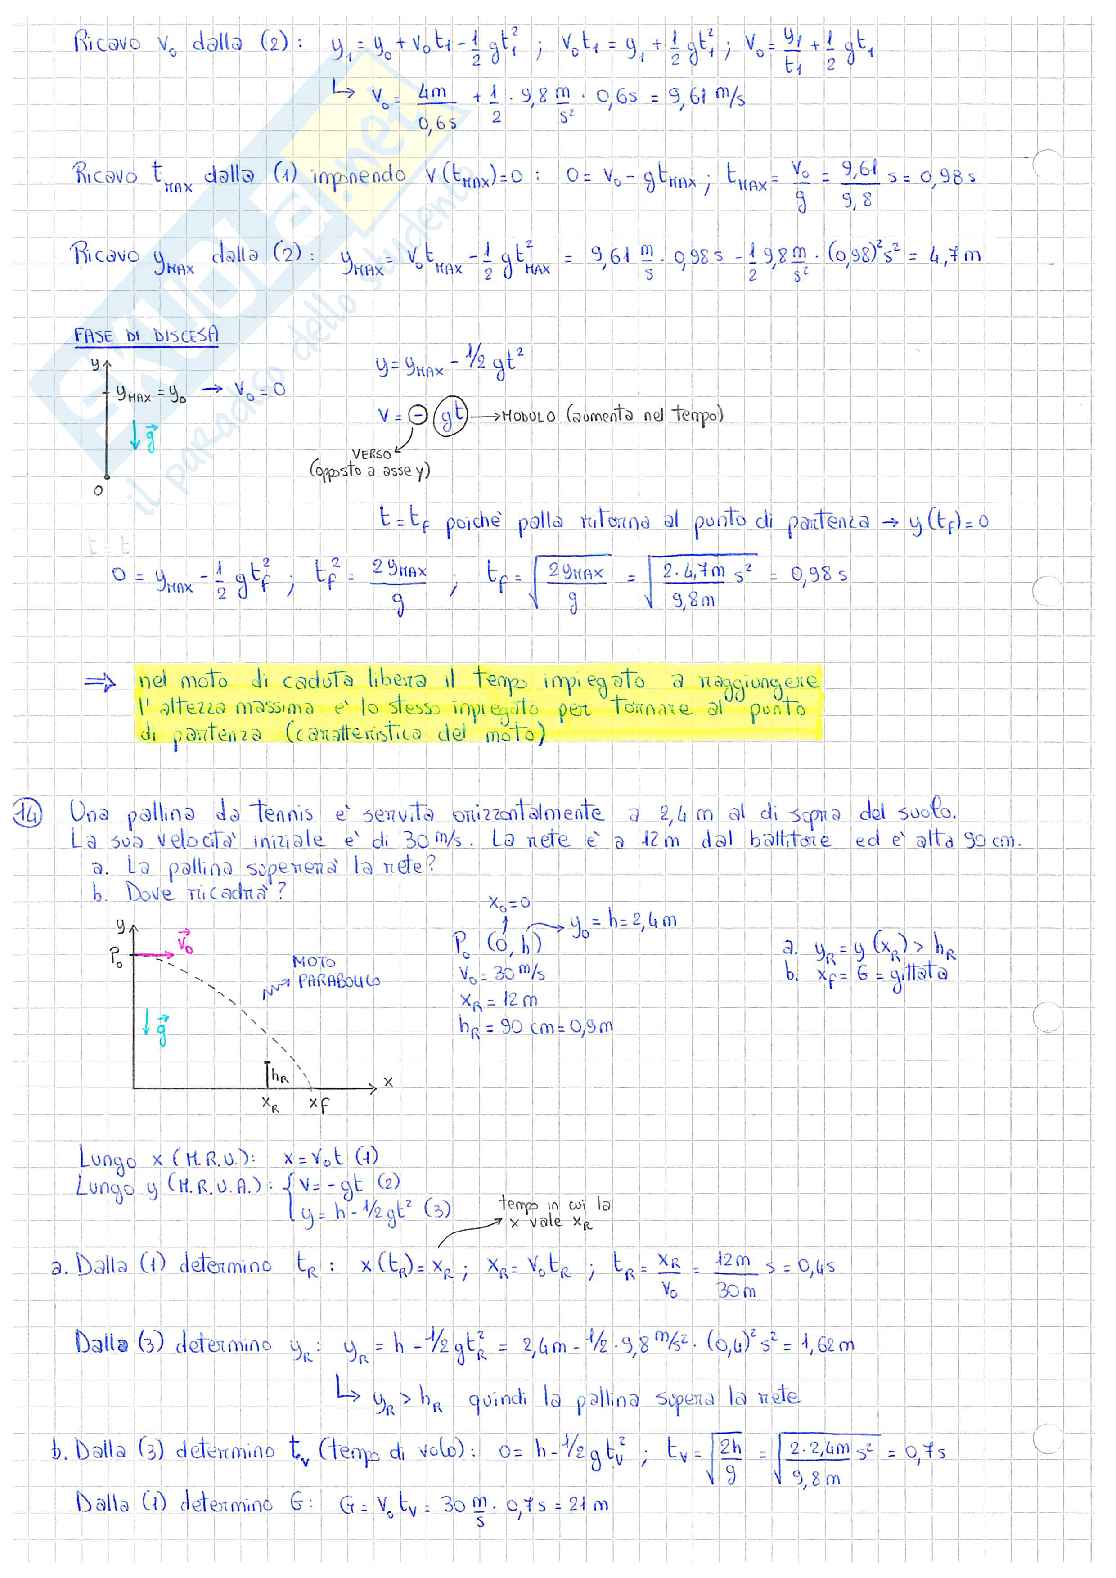 Ricavo v₀ dalla (2): y₁ = y₀ + v₀t₁ - 1/2 gt₁² ; v₀t₁ = y₁ + 1/2 gt₁² ; v₀ = y₁/t₁ + 1/2 gt₁
↳ v₀ = 4m/0,6s + 1/2 · 9,8 m/s² · 0,6s = 9,61 m/s
Ricavo t_MAX dalla (1) imponendo v(t_MAX)=0 : 0 = v₀ - gt_MAX ; t_MAX = v₀/g = 9,61/9,8 s = 0,98s
Ricavo y_MAX dalla (2): y_MAX = v₀t_MAX - 1/2 gt²_MAX = 9,61 m/s · 0,98s - 1/2 9,8 m/s² · (0,98)² s² = 4,7m
FASE DI DISCESA
y
y_MAX = y₀ → v₀ = 0
g⃗
O
y = y_MAX - 1/2 gt²
v = - gt → MODULO (aumenta nel tempo)
VERSO
(opposto a asse y)
t = t_f poichè palla ritorna al punto di partenza → y(t_f) = 0
0 = y_MAX - 1/2 gt_f² ; t_f² = 2y_MAX/g ; t_f = √(2y_MAX/g) = √(2·4,7m/9,8m s²) = 0,98s
⇒ nel moto di caduta libera il tempo impiegato a raggiungere
l'altezza massima è lo stesso impiegato per tornare al punto
di partenza (caratteristica del moto)
14 Una pallina da tennis è servita orizzontalmente a 2,4 m al di sopra del suolo.
La sua velocità iniziale è di 30 m/s. La rete è a 12m dal battitore ed è alta 90 cm.
a. La pallina supererà la rete?
b. Dove ricadrà?
y
P₀
v⃗₀
MOTO
PARABOLICO
g⃗
h_R
x
x_R x_f
x₀=0
P₀ (0, h) → y₀ = h = 2,4m
v₀ = 30 m/s
x_R = 12m
h_R = 90 cm = 0,9m
a. y_R = y(x_R) > h_R
b. x_f = G = gittata
Lungo x (M.R.U.): x = v₀t (1)
Lungo y (M.R.U.A.): { v = -gt (2)
y = h - 1/2 gt² (3)
tempo in cui la
x vale x_R
a. Dalla (1) determino t_R : x(t_R) = x_R ; x_R = v₀t_R ; t_R = x_R/v₀ = 12m/30m s = 0,4s
Dalla (3) determino y_R : y_R = h - 1/2 gt_R² = 2,4m - 1/2 · 9,8 m/s² · (0,4)² s² = 1,62m
↳ y_R > h_R quindi la pallina supera la rete
b. Dalla (3) determino t_v (tempo di volo): 0 = h - 1/2 gt_v² ; t_v = √(2h/g) = √(2·2,4m/9,8m s²) = 0,7s
Dalla (1) determino G: G = v₀t_v = 30 m/s · 0,7s = 21m